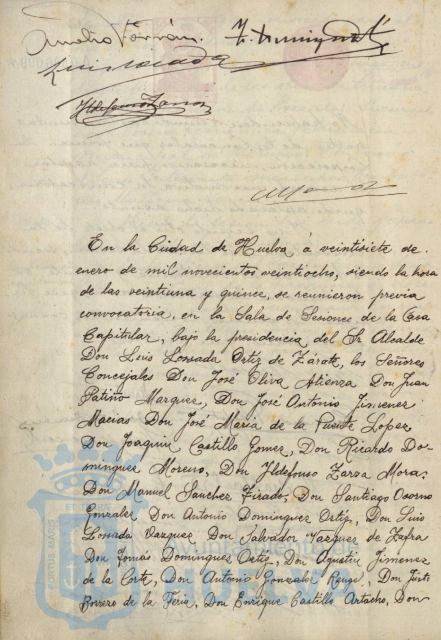 Aurelio Ferrán. F. Dominguez
Luis Losada
Ildefonso Zarza
En la Ciudad de Huelva á veintisiete de
enero de mil novecientos veintiocho, siendo la hora
de las veintiuna y quince, se reunieron previa
convocatoria, en la Sala de Sesiones de la Casa
Capitular, bajo la presidencia del Sr Alcalde
Don Luis Lossada Ortiz de Zárate, los Señores
Concejales Don José Oliva Atienza Don Juan
Patiño Marquez, Don José Antonio Jimenez
Macias Don José Maria de la Puente López
Don Joaquin Castillo Gomez, Don Ricardo Do-
minguez Moreno, Don Ildefonso Zarza Mora,
Don Manuel Sanchez Tirado, Don Santiago Osorno
Gonzalez Don Antonio Dominguez Ortiz, Don Luis
Lossada Vazquez Don Salvador Vazquez de Zafra
Don Tomás Dominguez Ortiz, Don Agustin Jimenez
de la Corte, Don Antonio Gonzalez Don Justo
Borrero de la Feria, Don Enrique Castillo Don
PORTUS MARIS